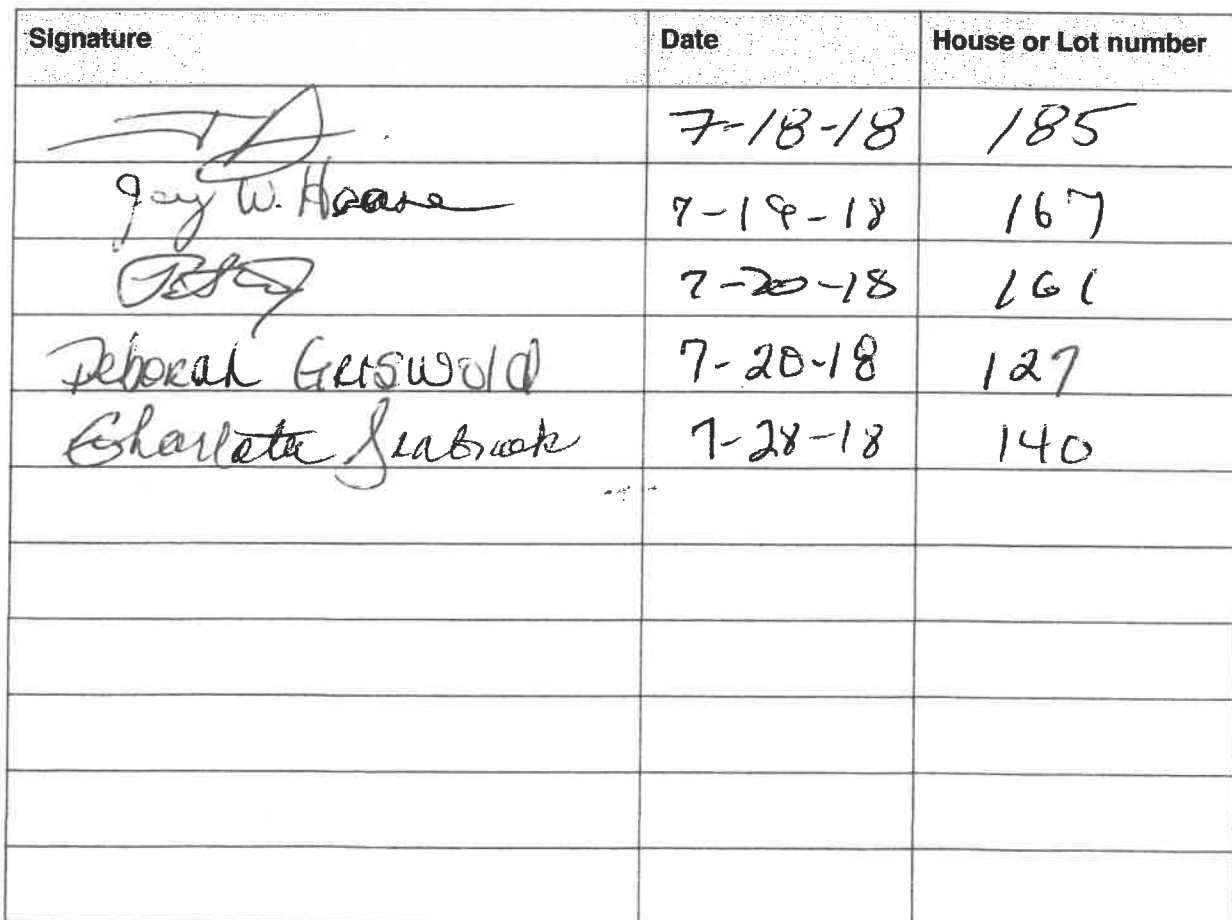 Signature Date House or Lot number
7-18-18 185
Jay W. Haase 7-19-18 167
7-20-18 161
Deborah Griswold 7-20-18 127
Charlata Seabrook 7-28-18 140